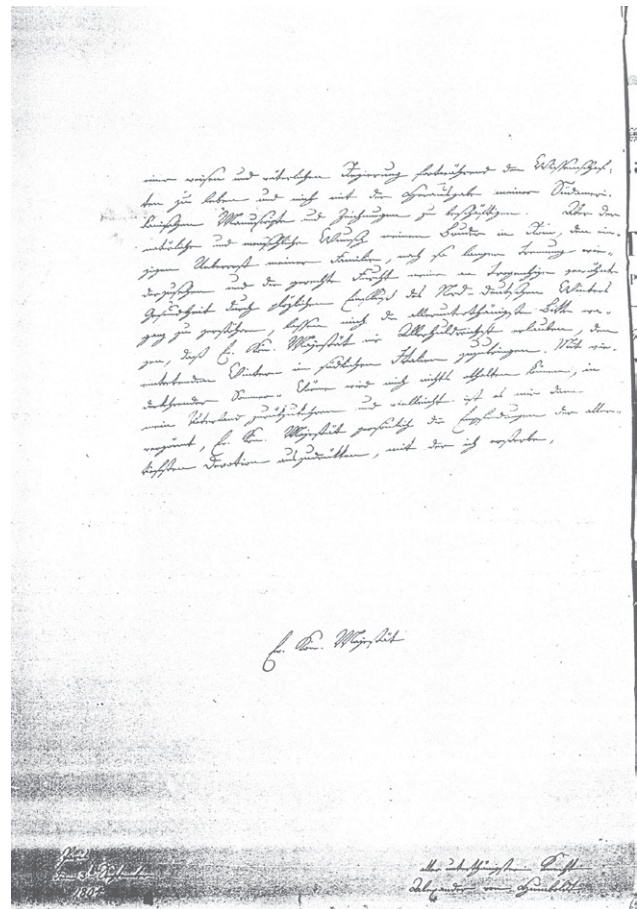 einer weisen und väterlichen Regierung fortwährend den Wissenschaf-
ten zu leben und mich mit der Herausgabe meiner Südameri-
kanischen Manuscripte und Zeichnungen zu beschäftigen. Aber der
natürliche und menschliche Wunsch meinen Bruder in Rom, den ein-
zigen Ueberrest meiner Familie, nach so langer Trennung wie-
derzusehen und die gerechte Furcht meine an Tropenhize gewöhnte
Gesundheit durch plözlichen Einfluß des Nord-deutschen Winters
ganz zu zerstöhren, lassen mich die allerunterthänigste Bitte wa-
gen, daß Ew. Kön. Majestät mir Allerhuldreichst erlauben, den
eintretenden Winter im südlichen Italien zuzubringen. Mit wie-
derkehrender Sonnen-Wärme wird mich nichts abhalten können, in
mein Vaterland zurükzukehren und vielleicht ist es mir dann
vergönnt, Ew. Kön. Majestät persönlich die Empfindungen der aller-
tiefsten Devotion auszudrükken, mit der ich ersterbe,
Ew. Kön. Majestät
Paris
den 3 September
1804
aller unterthänigster Knecht
Alexander von Humboldt